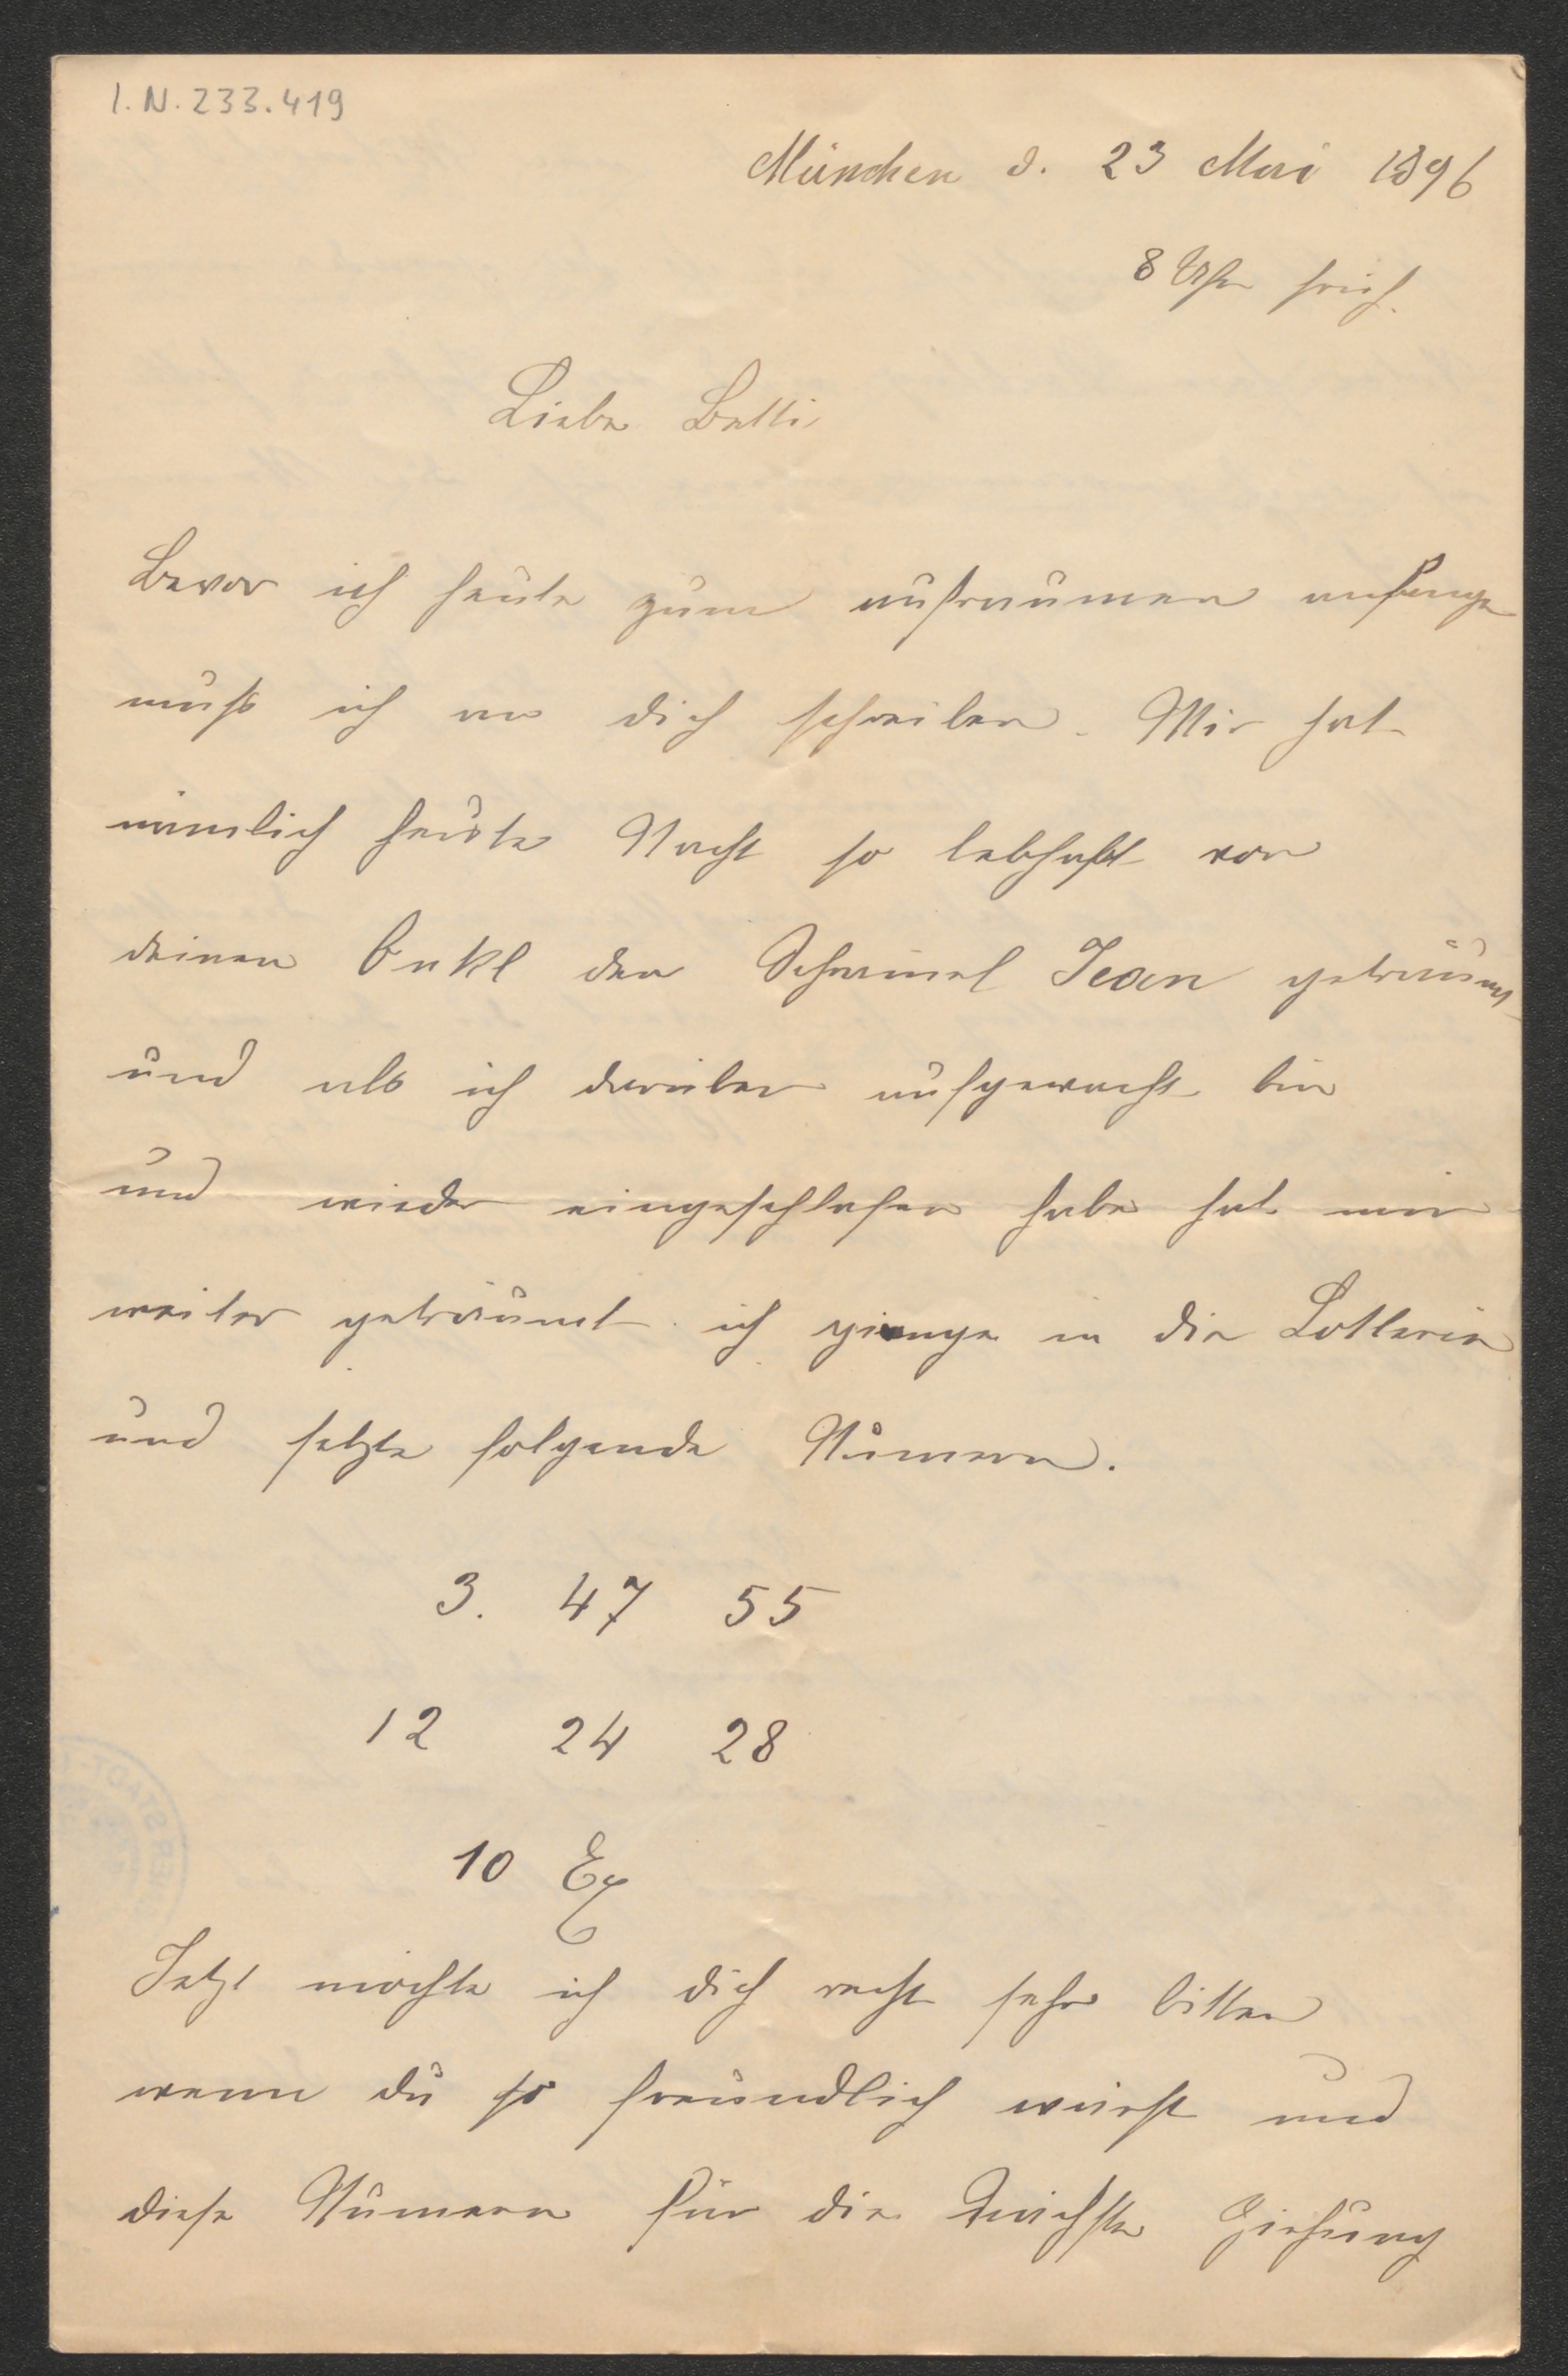 I.N. 233.419
München d. 23 Mai 1896
8 Uhr früh.
Liebe Betti
Bevor ich heute zum aufraumen anfange
muß ich an dich schreiben. Mir hat
nämlich heute Nacht so lebhaft von
deinen Onkl den Schraml Jean geträumt
und als ich darüber aufgewacht bin
und wieder eingeschlafen habe hat mir
weiter geträumt ich gienge in die Lotterie
und setzte folgende Numern.
3. 47 55
12 24 28
10 Ex
Jetzt möchte ich dich recht sehr bitten
wenn du so freundlich wärst und
diese Numern für die nächste Ziehung